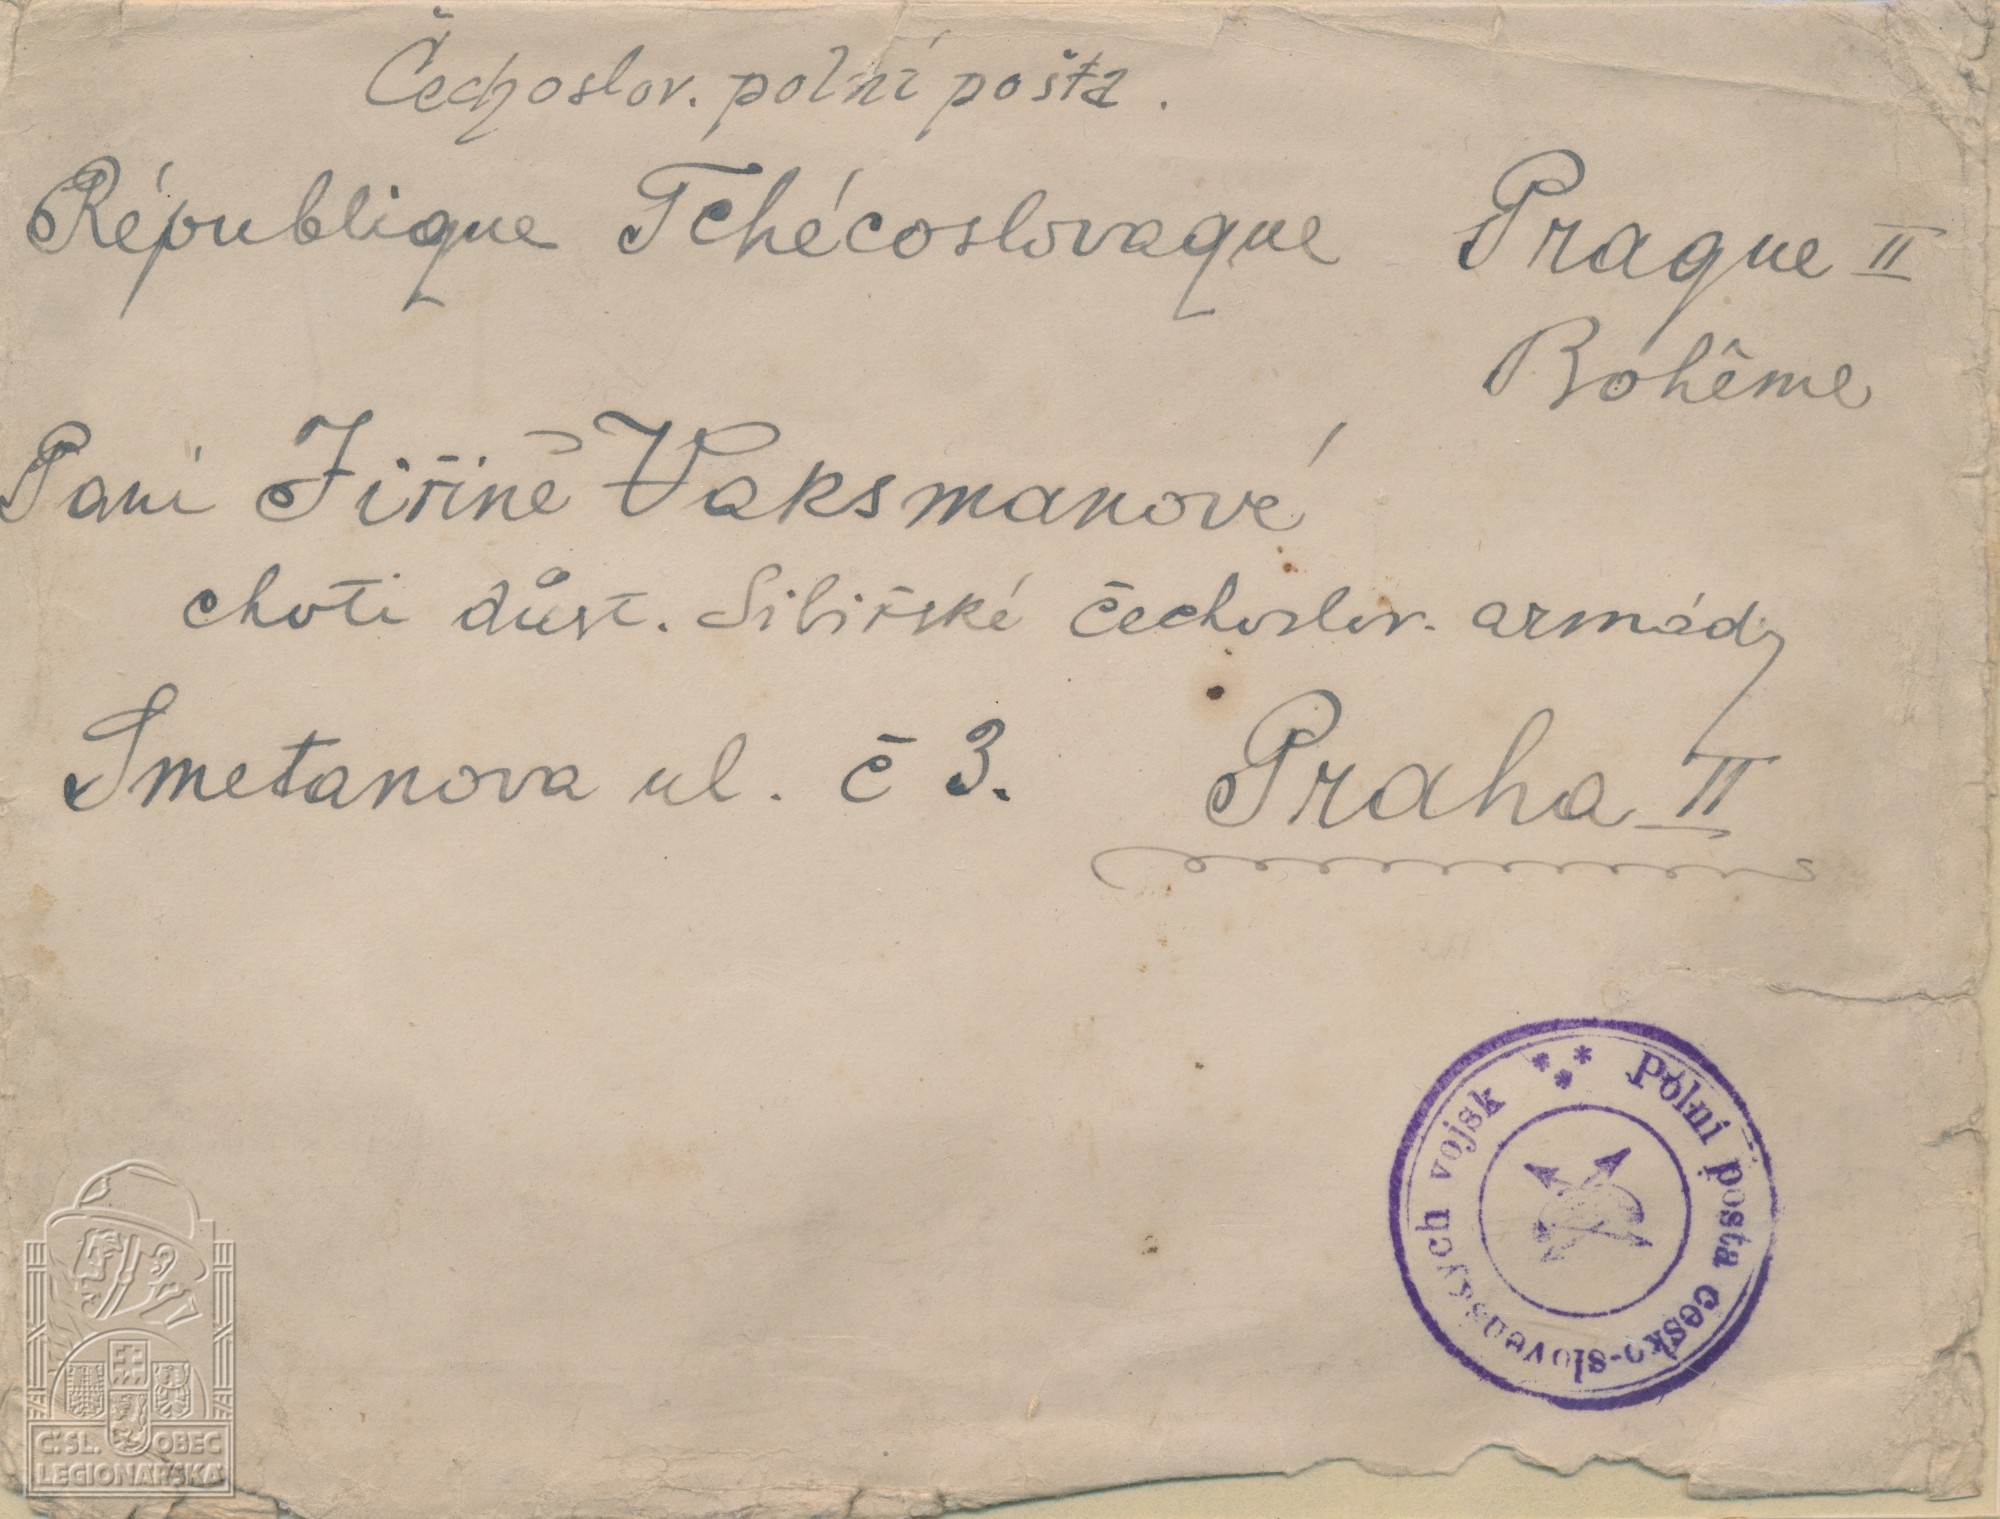 Čechoslov. polní pošta.
République Tchécoslovaque Prague II
Bohême
Paní Jiřině Vaksmanové
choti důst. Sibiřské čechoslov. armády
Smetanova ul. č 3. Praha II
Polní pošta česko-slovenských vojsk
Č:SL. OBEC
LEGIONÁŘSKÁ